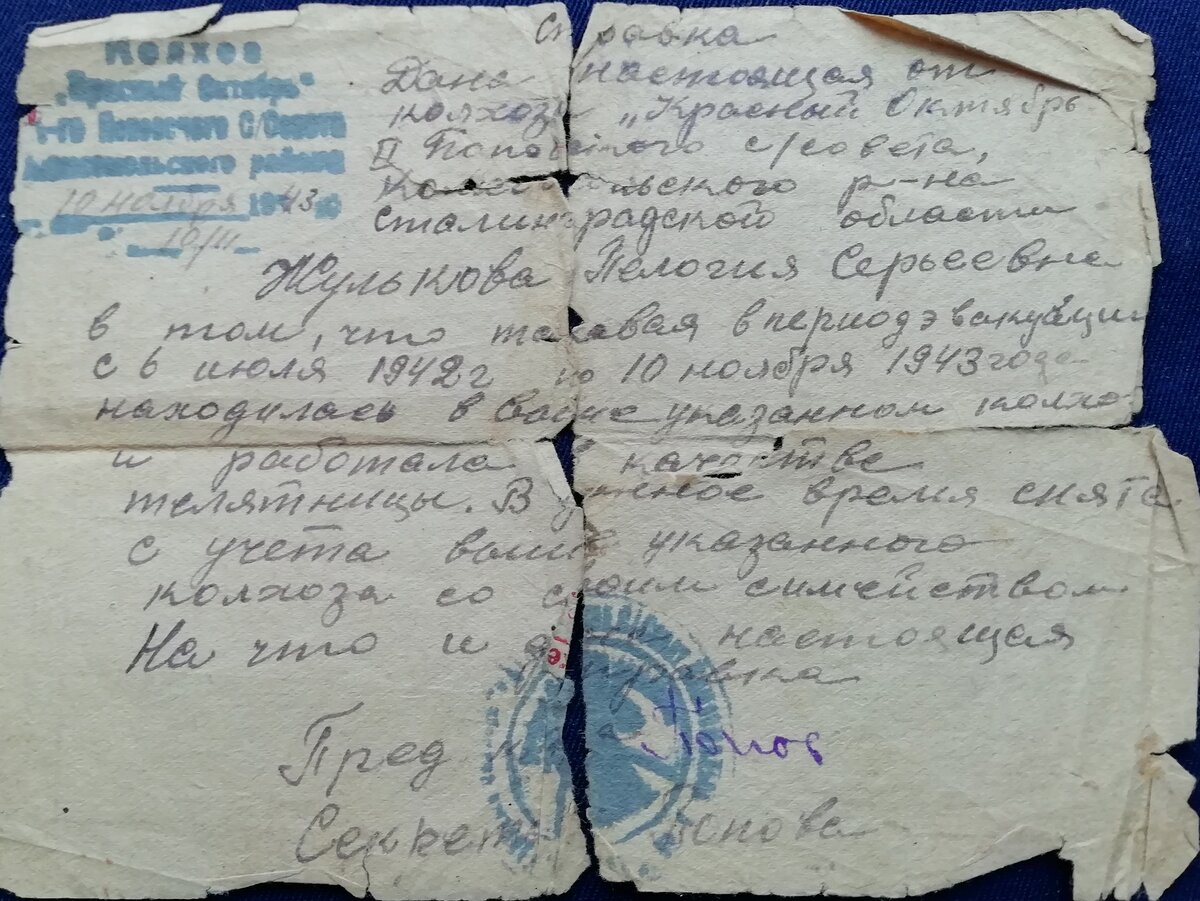 Справка
Колхоз
"Красный Октябрь"
С/Совета
района
10 ноября 1943
Дана настоящая от
колхоза „Красный Октябрь
II с/совета,
р-на
сталинградской области
Жулькова Пелогия Серьеевна
в том, что таковая в период эвакуации
с 6 июля 1942 г по 10 ноября 1943 года
находилась в выше указанном колхо
и работала в качестве
телятницы. В данное время снята
с учета выше указанного
колхоза со своим симейством
На что и дана настоящая
справка
Пред к-за Попов
Секрет Попова